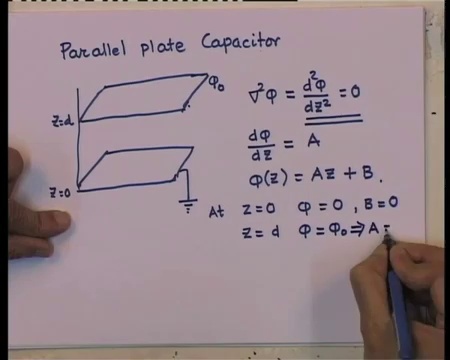 Parallel plate Capacitor
φ₀
z=d
z=0
∇²φ = d²φ/dz² = 0
dφ/dz = A
φ(z) = Az + B.
At z=0 φ=0 , B=0
z=d φ=φ₀ ⇒ A =